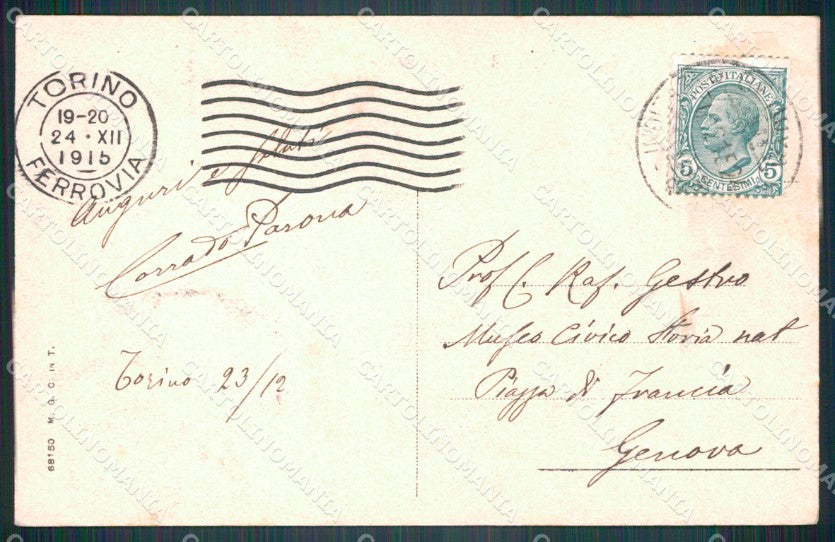 TORINO
19-20
24 · XII
1915
FERROVIA
POSTE ITALIANE
5 CENTESIMI 5
Auguri e saluti
Corrado Parona
Torino 23/12
Prof. C. Raf. Gestro
Museo Civico Storia nat
Piazza di Francia
Genova
68150 M. G. C. IN T.
CARTOLINOMANIA